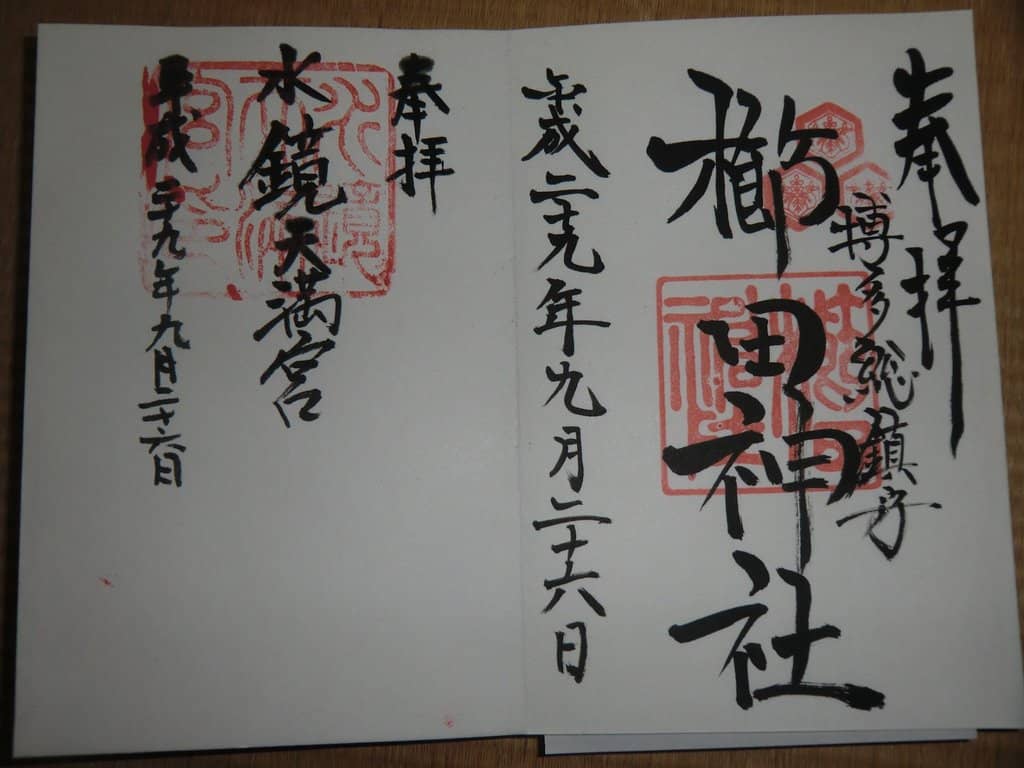 奉拝
博多総鎮守
櫛田神社
平成二十九年九月二十六日
奉拝
水鏡天満宮
平成二十九年九月二十六日